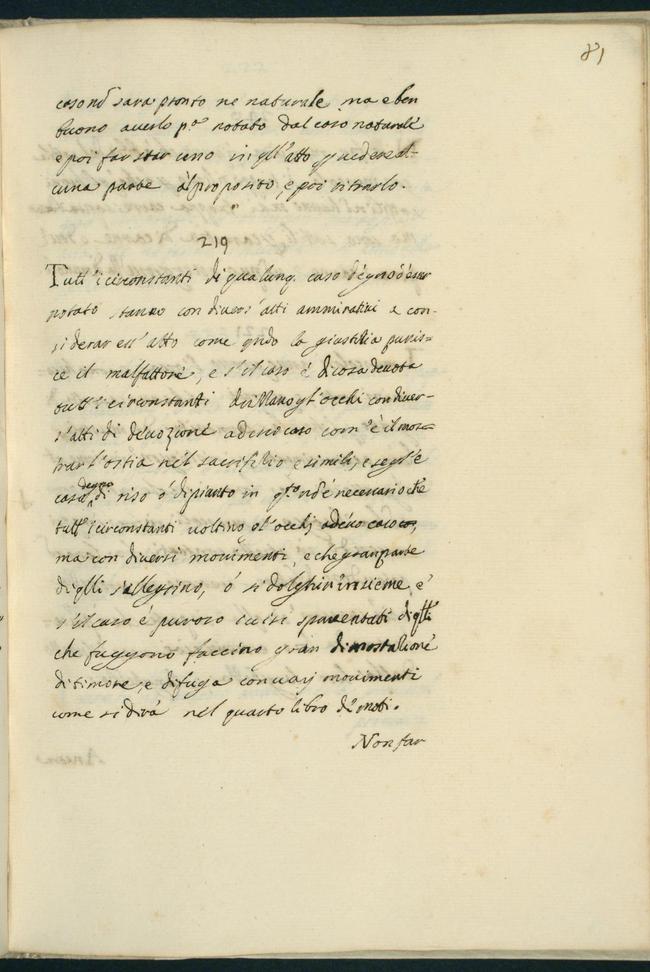 81
caso nō sara pronto ne naturale ma e ben
buono averlo p.º notato dal caso naturale
e poi far star uno in qll'atto p vedere al-
cuna parte àl proposito, e poi ritrarlo.
219
Tutt'i circonstanti di qualunq. caso degno d'esser
notato stanno con diversi atti ammirativi a con-
siderar ess'atto come qndo la giustitia punis-
ce il malfattore, e s'il caso è di cosa devota
tutt'i circonstanti drizzano gl'occhi con diver-
s'atti di devozione ad esso caso com'è il mos-
trar l'ostia nel sacrifitio e simili, e se gl'è
caso degno di riso ó di pianto in qsto nō è necessario che
tutt'i circonstanti voltino gl'occhj ad esso caso,
ma con diversi movimenti, e che gran parte
di qlli s'allegrino, ó si dolghin insieme, e
s'il caso è pauroso i visi spaventati di qlli
che fuggono faccino gran dimostratione
di timore, e di fuga con varj movimenti
come si dirà nel quarto libro de moti.
Non far